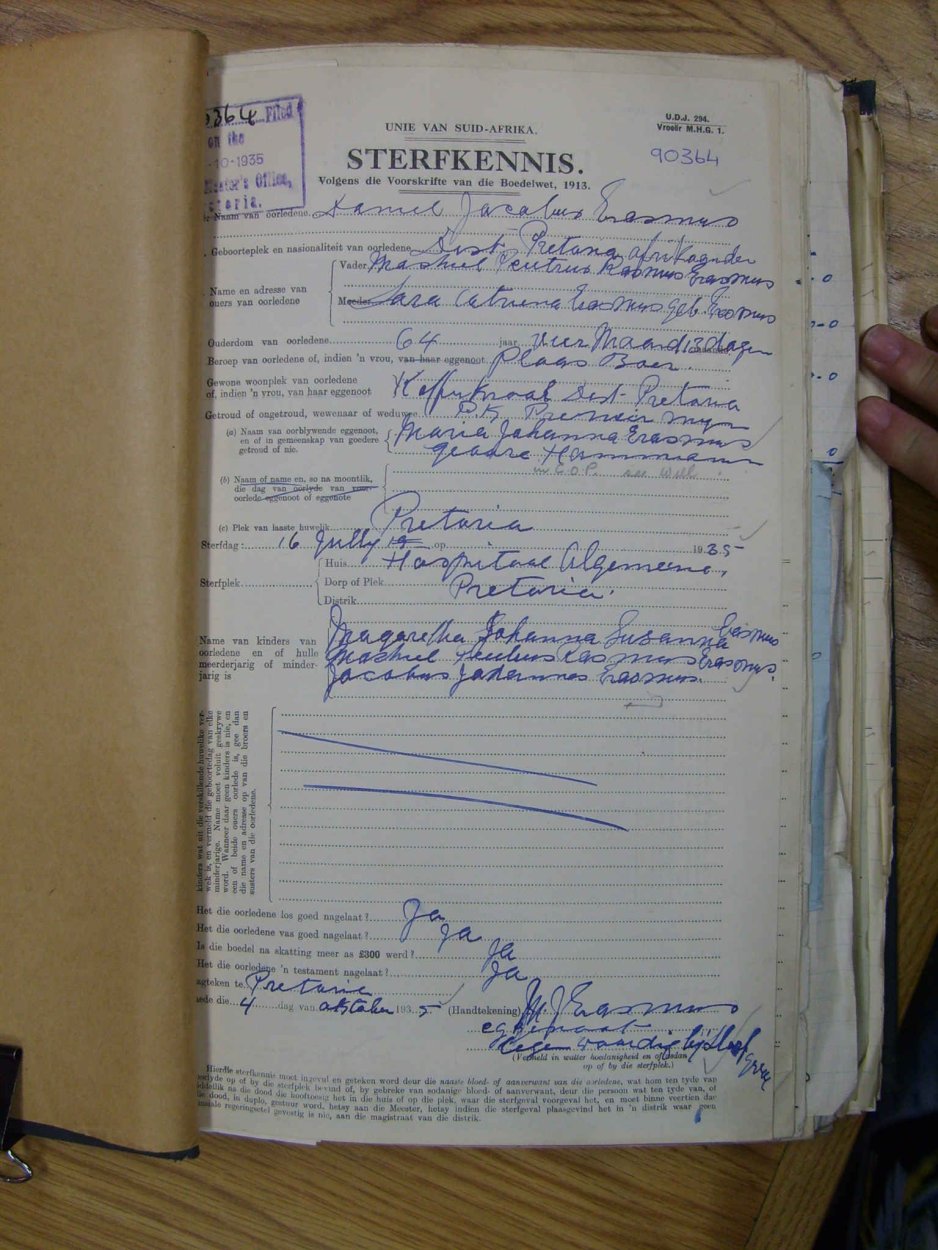 5364 Filed
on the
-10-1935
Master's Office,
Pretoria.
UNIE VAN SUID-AFRIKA.
U.D.J. 294.
Vroeër M.H.G. 1.
STERFKENNIS.
90364
Volgens die Voorskrifte van die Boedelwet, 1913.
Naam van oorledene Daniel Jacobus Erasmus
Geboorteplek en nasionaliteit van oorledene Dist. Pretoria afrikaander
Name en adresse van ouers van oorledene
Vader Erasmus Erasmus
Moeder Sara Catriena Erasmus geb. Erasmus
Ouderdom van oorledene 64 jaar vier Maand 13 dagen
Beroep van oorledene of, indien 'n vrou, van haar eggenoot Plaas Boer.
Gewone woonplek van oorledene of, indien 'n vrou, van haar eggenoot Dist. Pretoria
P.K. Premier myn
Getroud of ongetroud, wewenaar of weduwee
(a) Naam van oorblywende eggenoot, en of in gemeenskap van goedere getroud of nie. Maria Johanna Erasmus
gebore Hammann
in C.O.P. see Will
(b) Naam of name en, so na moontlik, die dag van oorlyde van vooroorlede eggenoot of eggenote
(c) Plek van laaste huwelik Pretoria
Sterfdag: 16 Jully 19 op 1935
Sterfplek
Huis Hospitaal Algemeene,
Dorp of Plek Pretoria.
Distrik
Name van kinders van oorledene en of hulle meerderjarig of minderjarig is
Magaretha Johanna Susanna Erasmus
Erasmus Erasmus.
Jacobus Johannes Erasmus.
kinders wat uit die verskillende huwelike verwek is, en vermeld die geboortedag van elke minderjarige. Name moet voluit geskrywe word. Wanneer daar geen kinders is nie, en een of beide ouers oorlede is, gee dan die name en adresse op van die broers en susters van die oorledene.
Het die oorledene los goed nagelaat? Ja
Het die oorledene vas goed nagelaat? Ja
Is die boedel na skatting meer as £300 werd? Ja
Het die oorledene 'n testament nagelaat? Ja
Pretoria
4 dag van oktober 1935 (Handtekening) M J Erasmus
eggenoot
tegenwoordig bij
(Vermeld in watter hoedanigheid en of aldan op of by die sterfplek.)
Hierdie sterfkennis moet ingevul en geteken word deur die naaste bloed- of aanverwant van die oorledene, wat ten tyde van
oorlyde op of by die sterfplek bevind of, by gebreke van sodanige bloed- of aanverwant, deur die persoon wat ten tyde van, of
onmiddellik na die dood die hooftoesig het in die huis of op die plek, waar die sterfgeval voorgeval het, en moet binne veertien dae
die dood, in duplo, gestuur word, hetsy aan die Meester, hetsy indien die sterfgeval plaasgevind het in 'n distrik waar geen
regeringsetel gevestig is nie, aan die magistraat van die distrik.